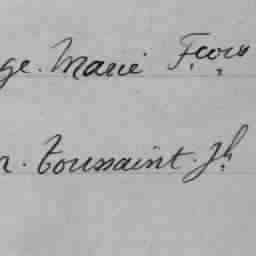 ge. Marie Fçois
n. Toussaint. Jh